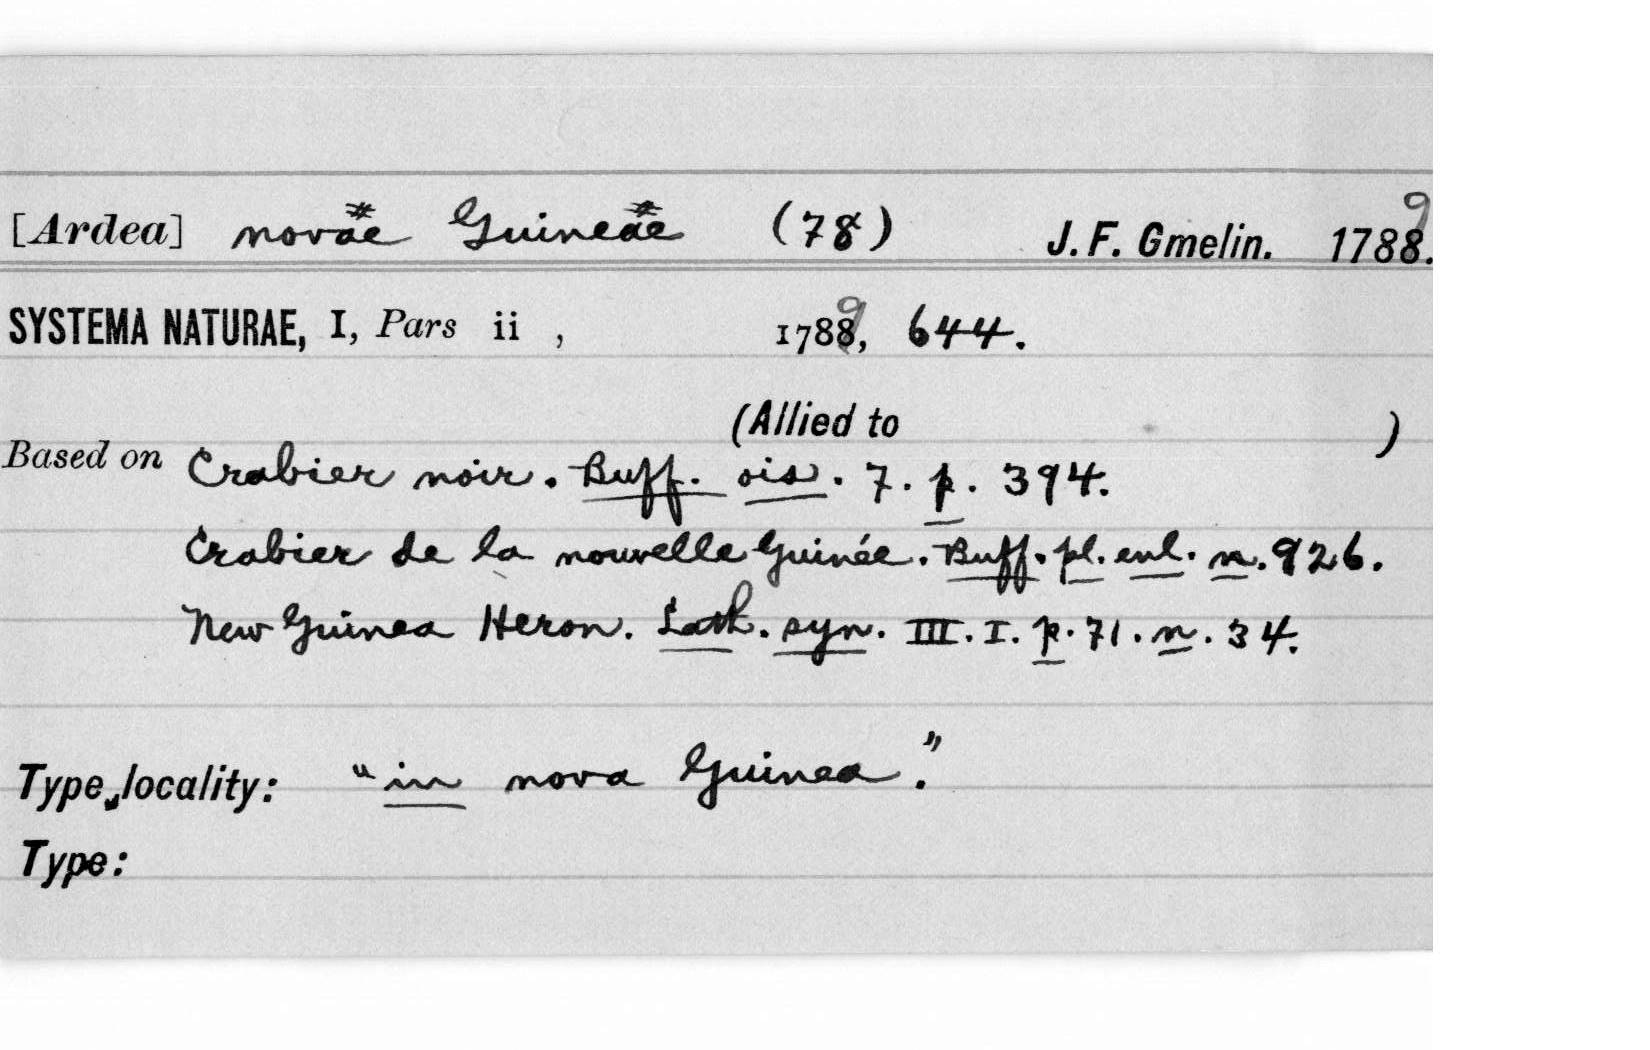 [Ardea] novae Guineae (78) J. F. Gmelin. 1788. 9
SYSTEMA NATURAE, I, Pars ii , 1788, 9 644.
(Allied to )
Based on Crabier noir. Buff. ois. 7. p. 394.
Crabier de la nouvelle Guinée. Buff. pl. enl. n. 926.
New Guinea Heron. Lath. syn. III. I. p. 71. n. 34.
Type locality: "in nova Guinea."
Type: